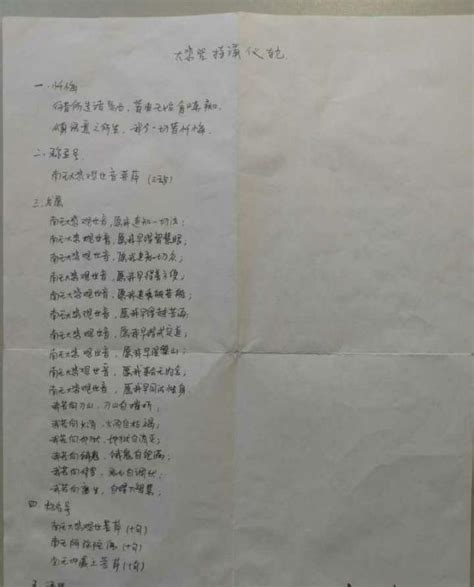 大悲咒持诵仪轨
一.忏悔
往昔所造诸恶业,皆由无始贪嗔痴.
从身语意之所生,一切我今皆忏悔.
二.称圣号.
南无大悲观世音菩萨(三称)
三.发愿
南无大悲观世音,愿我速知一切法;
南无大悲观世音,愿我早得智慧眼;
南无大悲观世音,愿我速度一切众;
南无大悲观世音,愿我早得善方便;
南无大悲观世音,愿我速乘般若船;
南无大悲观世音,愿我早得越苦海;
南无大悲观世音,愿我速得戒定道;
南无大悲观世音,愿我早登涅槃山;
南无大悲观世音,愿我速会无为舍;
南无大悲观世音,愿我早同法性身.
我若向刀山,刀山自摧折;
我若向火汤,火汤自枯竭;
我若向地狱,地狱自消灭;
我若向饿鬼,饿鬼自饱满;
我若向修罗,恶心自调伏;
我若向畜生,自得大智慧;
四.称名号
南无大悲观世音菩萨(十句)
南无阿弥陀佛(十句)